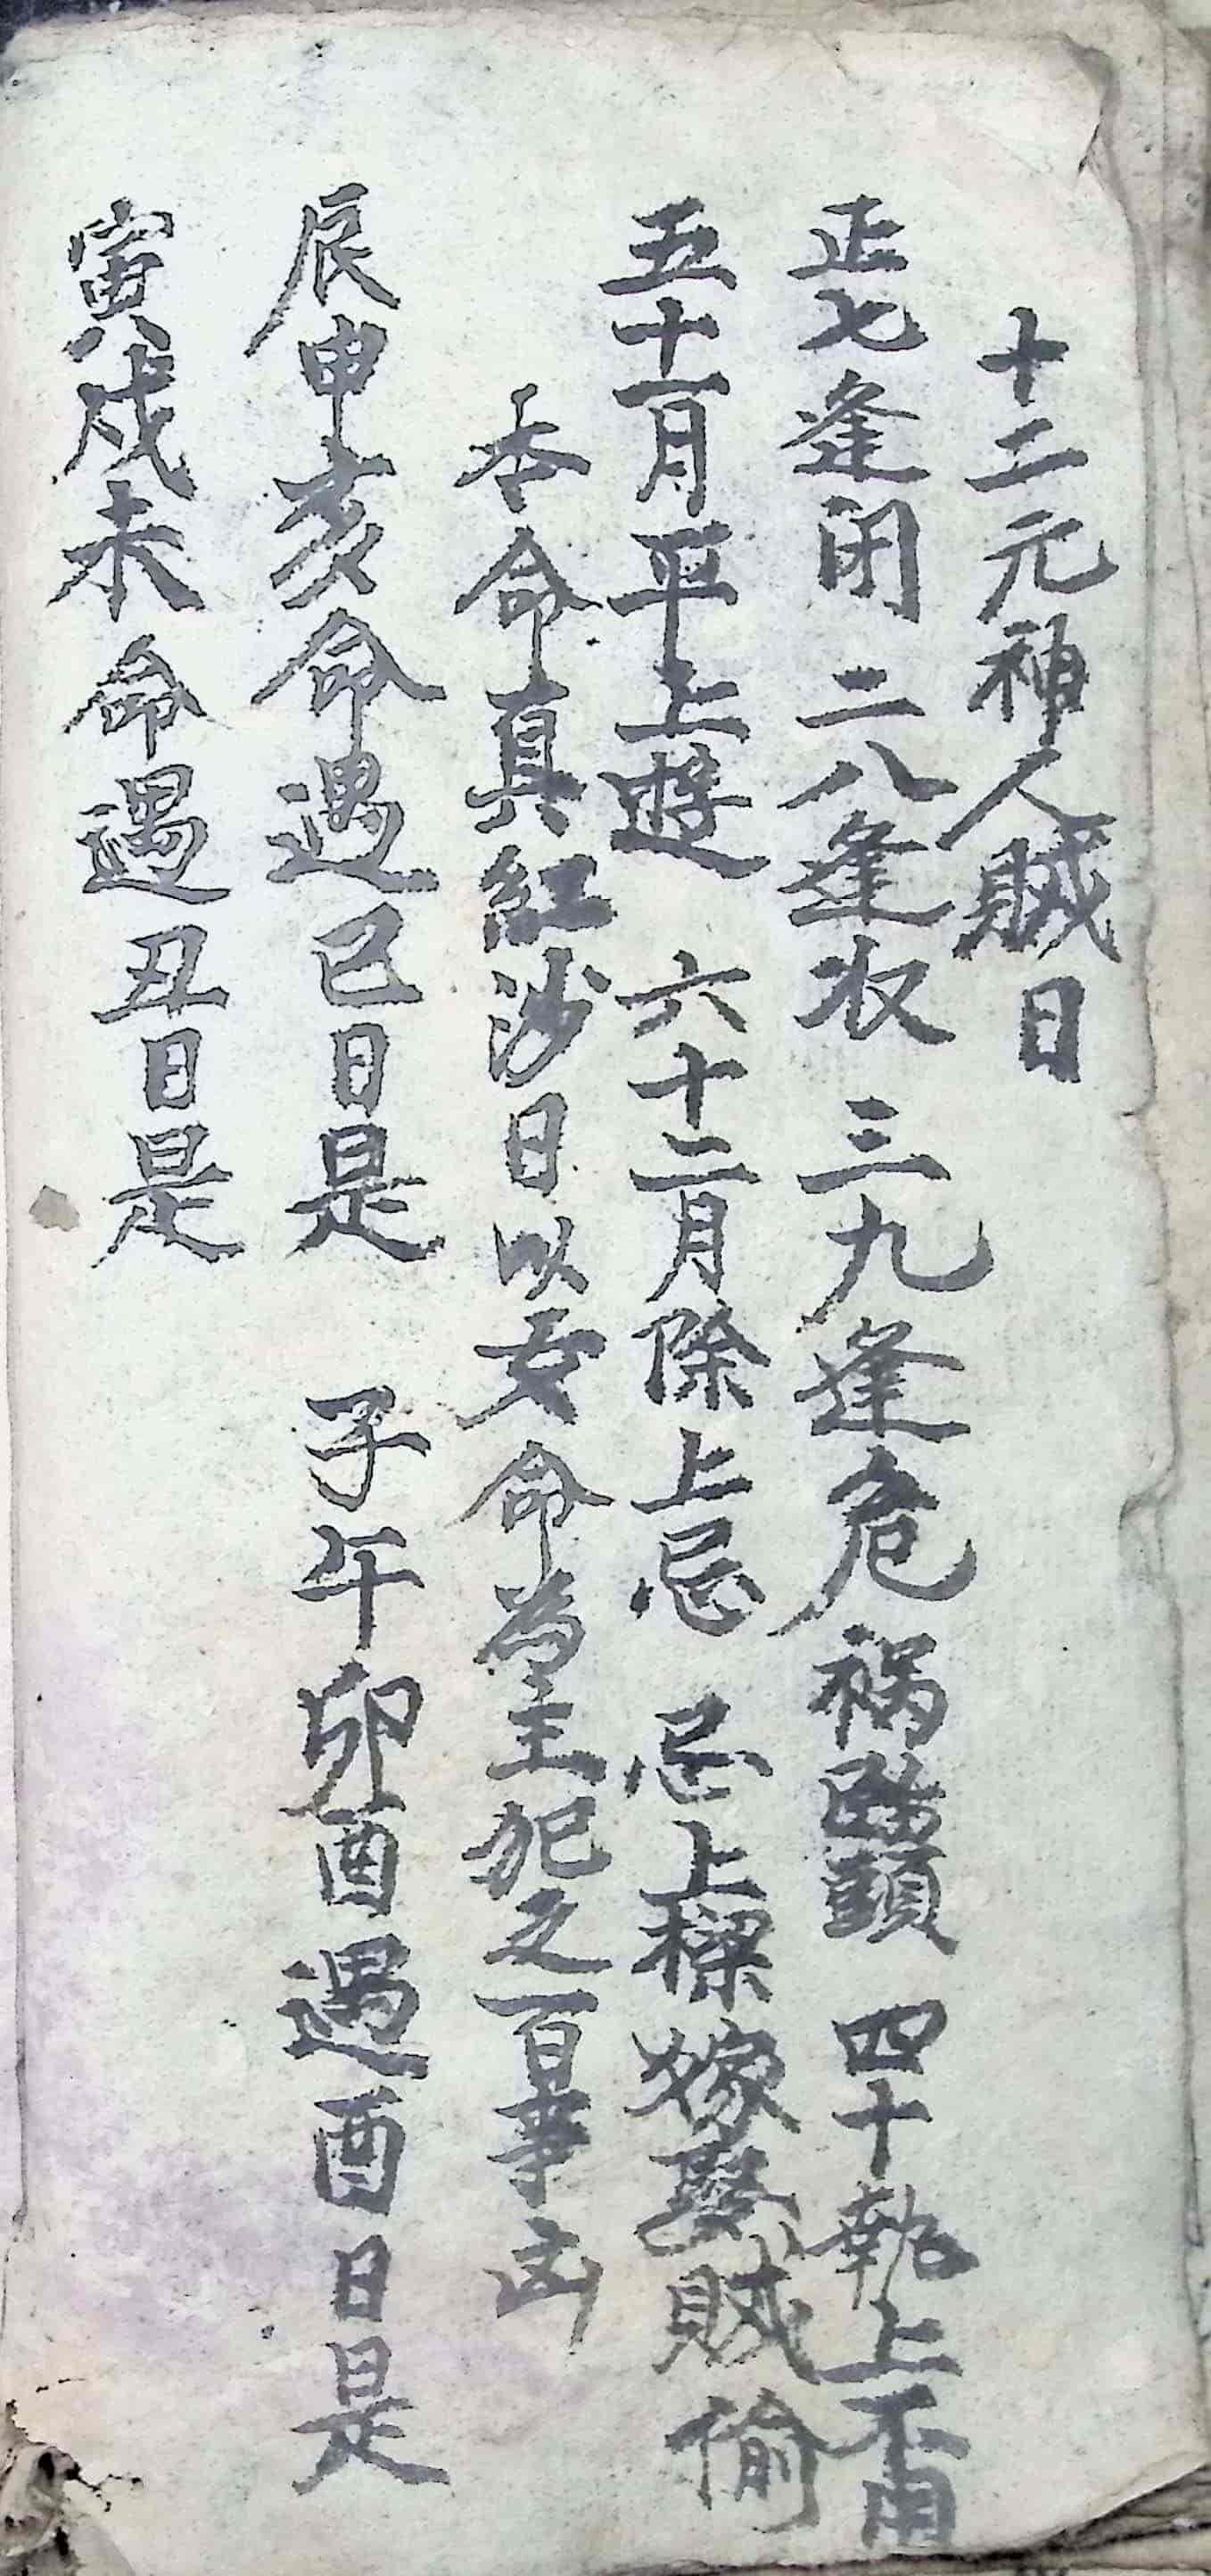 十二元神人賊日
正七逢闭 二八逢收 三九逢危祸臨頭 四十執上不用
五十一月平上遊 六十二月除上忌 忌上樑嫁娶賊偷
本命真紅沙日以女命為主犯之百事凶
辰申亥命遇巳日是 子午卯酉遇酉日是
寅戍未命遇丑日是